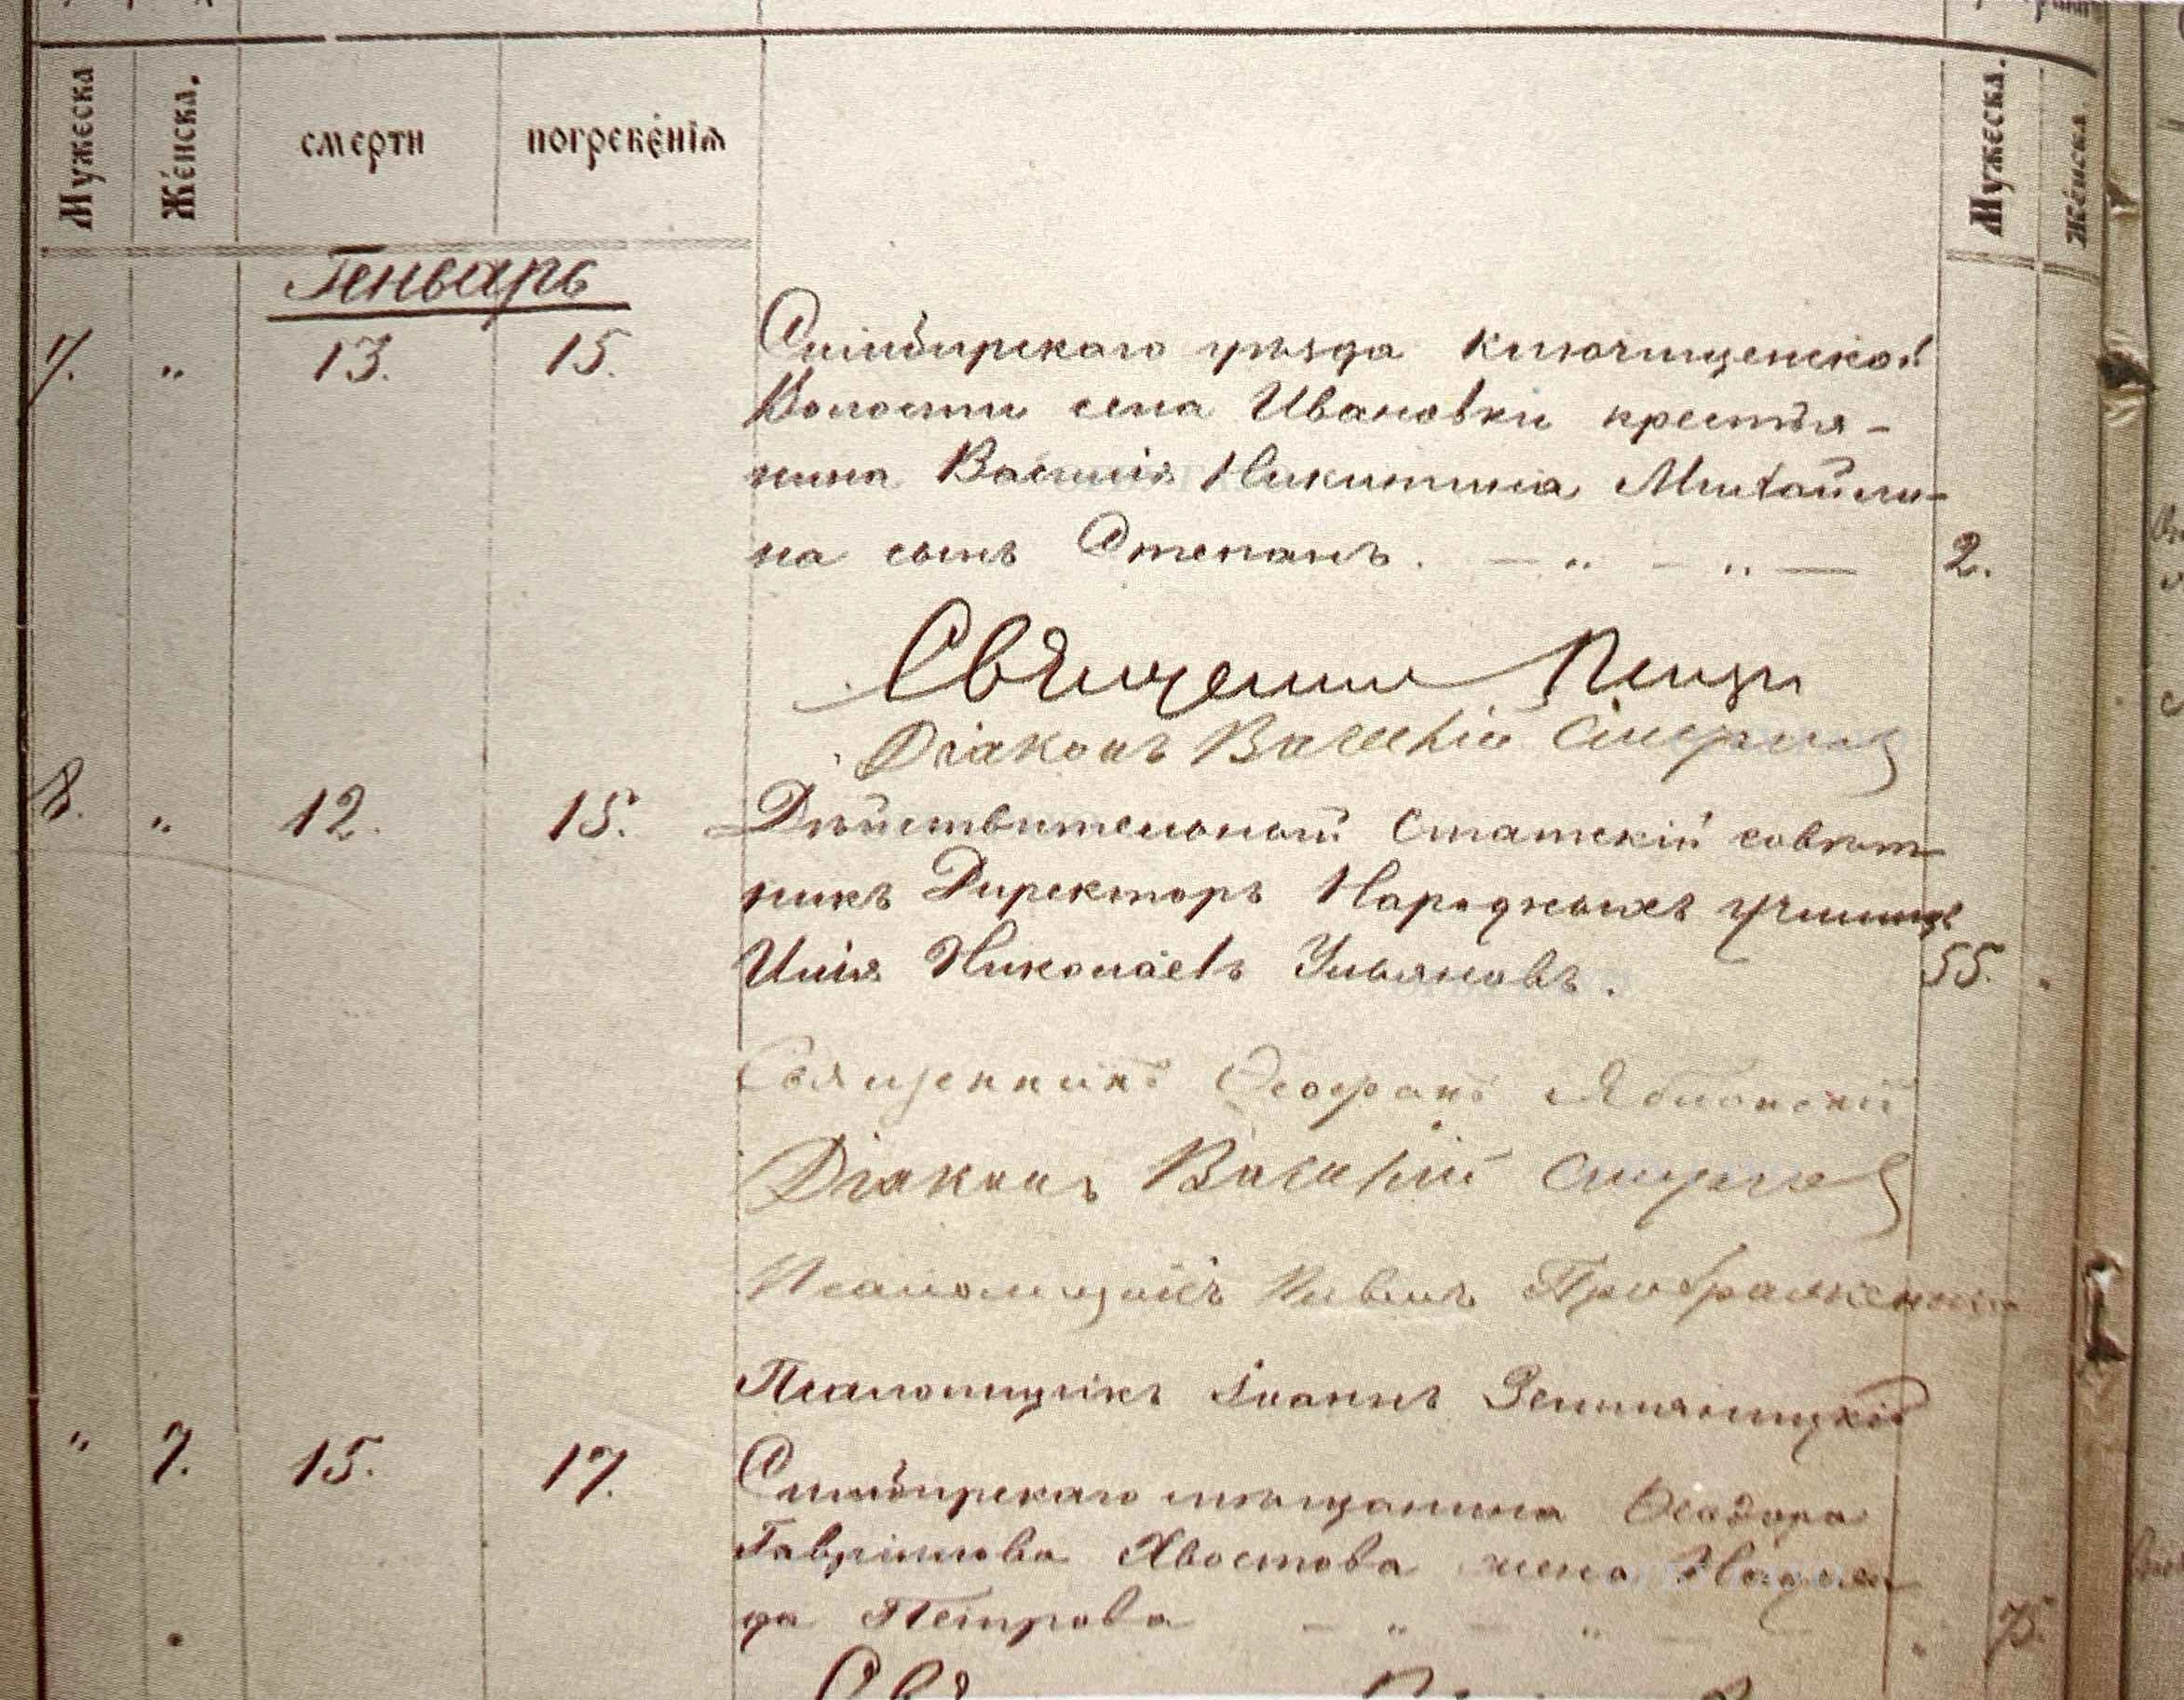 Мужеска
Же́нска.
смерти
погребе́нїѧ
Мужеска.
Же́нска.
Генварь
7. " 13. 15. Симбирскаго уѣзда Ключищенской
Волости села Ивановки крестья-
нина Василія Никитина Михайли-
на сынъ Степанъ. — " — " — 2.
Священни
Діаконъ Василій Смирнов
8. " 12. 15. Дѣйствительный Статскій совѣт
никъ Директоръ Народныхъ училищъ
Илія Николаевъ Ульяновъ. 55. "
Священникъ Ѳеофанъ Яблонскій
Діаконъ Василій Смирнов
Псаломщикъ Преображенскі
Псаломщикъ Іоаннъ Земляницкій
" 7. 15. 17. Симбирскаго мѣщанина Ѳеодора
Гаврилова Хвостова жена Надеж
да Петрова — " — " — " 75.